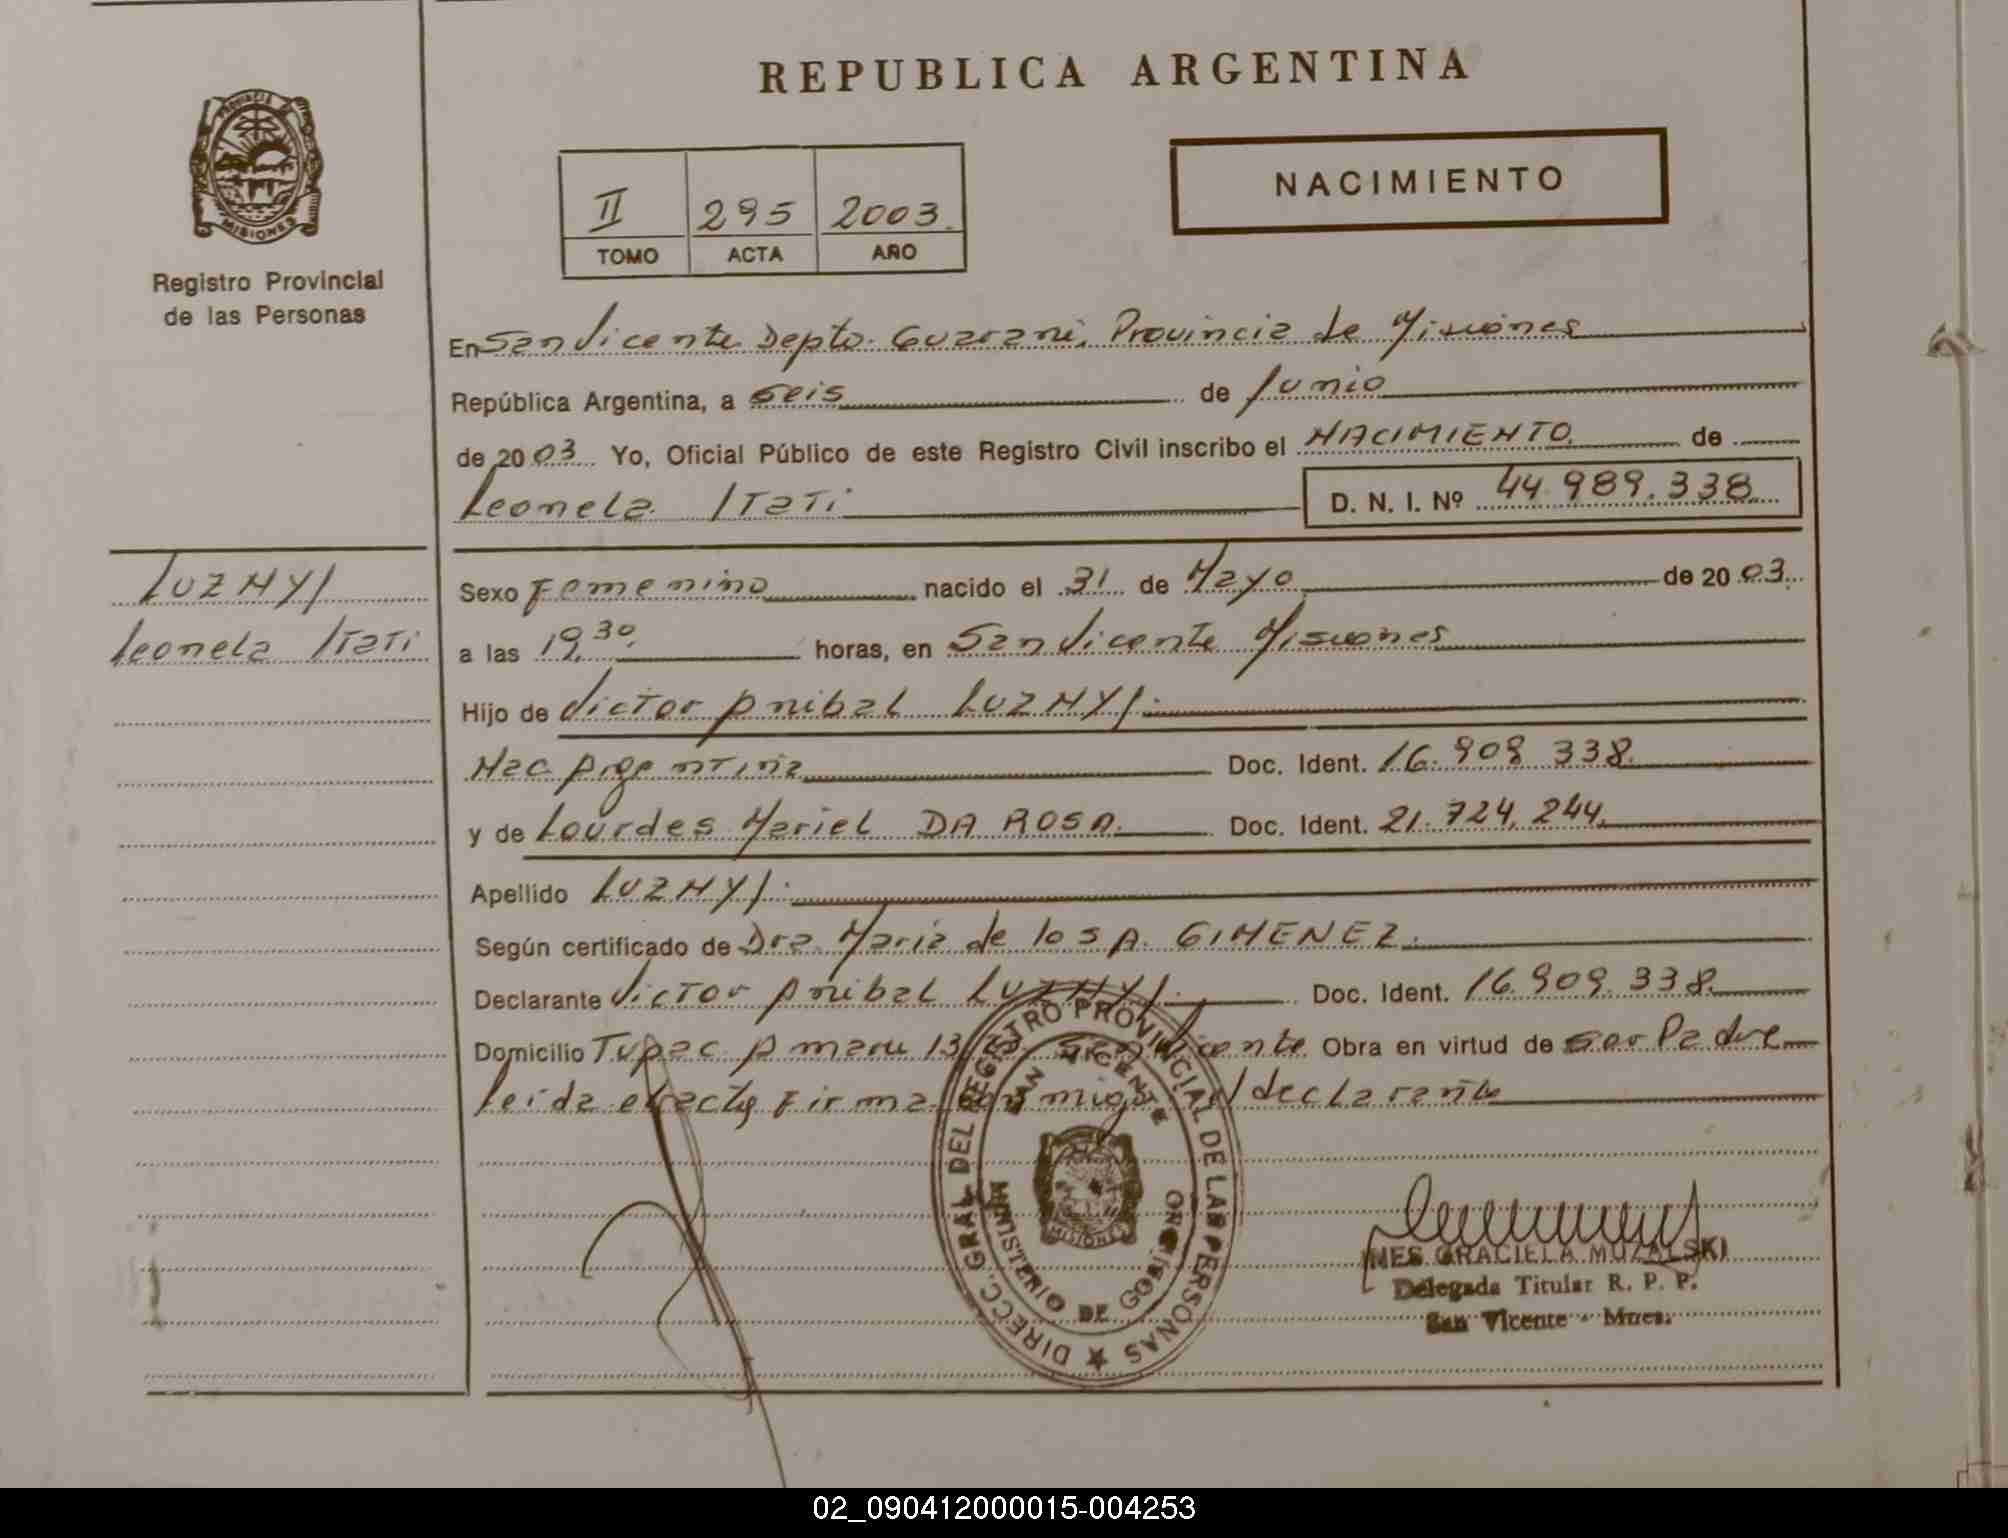 REPUBLICA ARGENTINA
PROVINCIA DE
MISIONES
Registro Provincial
de las Personas
II 295 2003
TOMO ACTA AÑO
NACIMIENTO
En San Vicente Depto. Guarani, Provincia de Misiones
República Argentina, a seis de Junio
de 2003 Yo, Oficial Público de este Registro Civil inscribo el NACIMIENTO de
Leonela Itati D. N. I. Nº 44.989.338
LUZNYJ
Leonela Itati
Sexo Femenino nacido el 31 de Mayo de 2003
a las 19,30 horas, en San Vicente Misiones
Hijo de Victor Anibal LUZNYJ
Nac Argentina Doc. Ident. 16.909.338
y de Lourdes Mariel DA ROSA Doc. Ident. 21.724.244
Apellido LUZNYJ
Según certificado de Dra. Maria de los A. GIMENEZ
Declarante Victor Anibal LUZNYJ Doc. Ident. 16.909.338
Domicilio Tupac Amaru San Vicente Obra en virtud de ser Padre
leida el acta firma conmigo el declarante
DIRECC. GRAL. DEL REGISTRO PROVINCIAL DE LAS PERSONAS
SAN VICENTE
MISIONES
MINISTERIO DE GOBIERNO
INES GRACIELA MUZALSKI
Delegada Titular R. P. P.
San Vicente - Mnes.
02_090412000015-004253